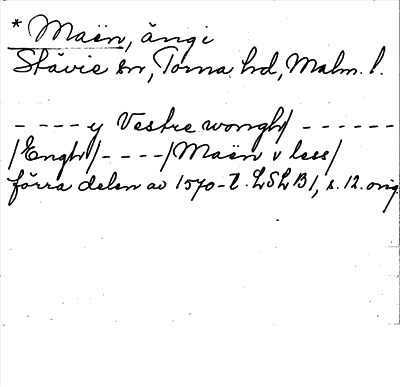 * Maën, ängi
Stävie sn, Torna hd, Malm. l.
- - - - y Vestre wongh/ - - - - - -
/Engh/ - - - - /Maën v less/
förra delen av 1570-t. LSLB1, s. 12. orig.